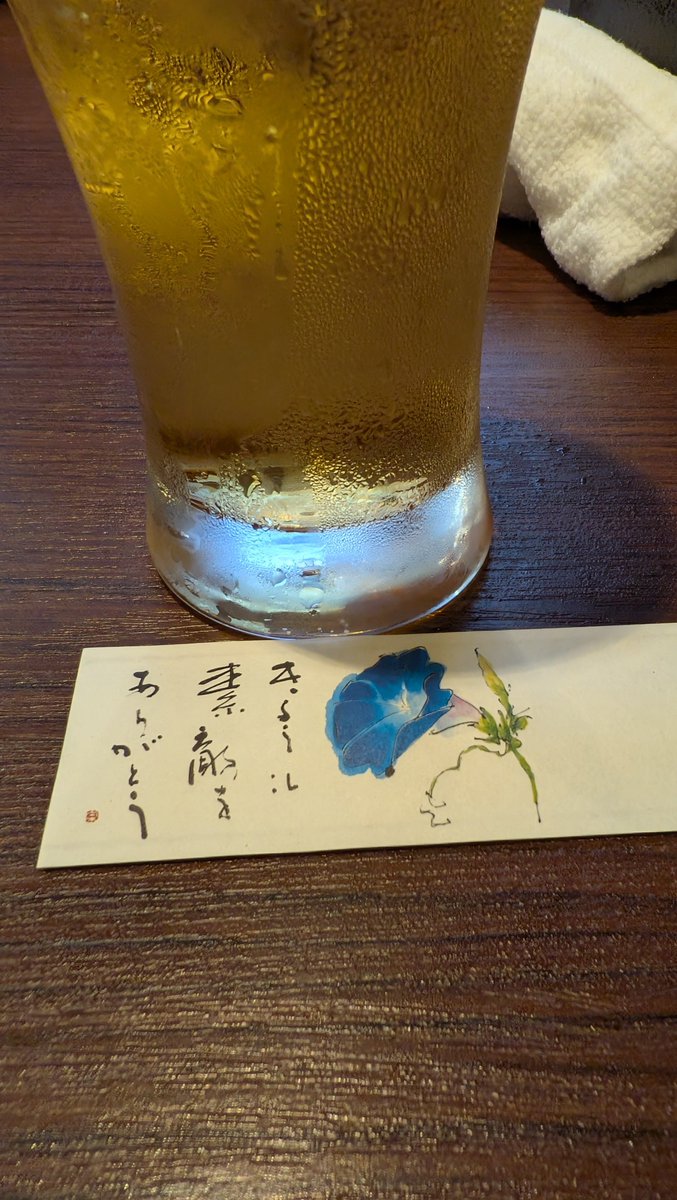 きょう
素敵を
ありがとう